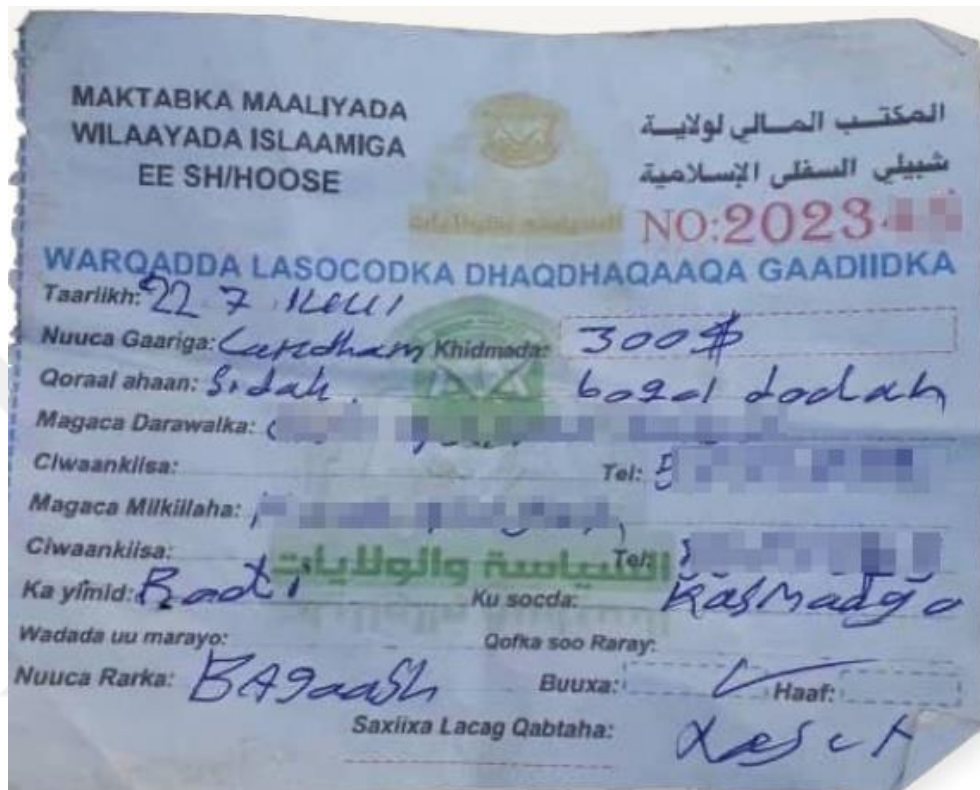 MAKTABKA MAALIYADA
WILAAYADA ISLAAMIGA
EE SH/HOOSE
المكتب المالي لولاية
شبيلي السفلى الإسلامية
NO:2023
WARQADDA LASOCODKA DHAQDHAQAAQA GAADIIDKA
Taariikh: 22.7
Nuuca Gaariga: Khidmada: 300$
Qoraal ahaan: Sidah bogol dodah
Magaca Darawalka:
Ciwaankiisa: Tel:
Magaca Milkillaha:
السياسة والولايات
Ciwaankiisa: Tel:
Ka yimid: Ku socda:
Wadada uu marayo: Qofka soo Raray:
Nuuca Rarka: BAgaash Buuxa: Haaf:
Saxiixa Lacag Qabtaha: